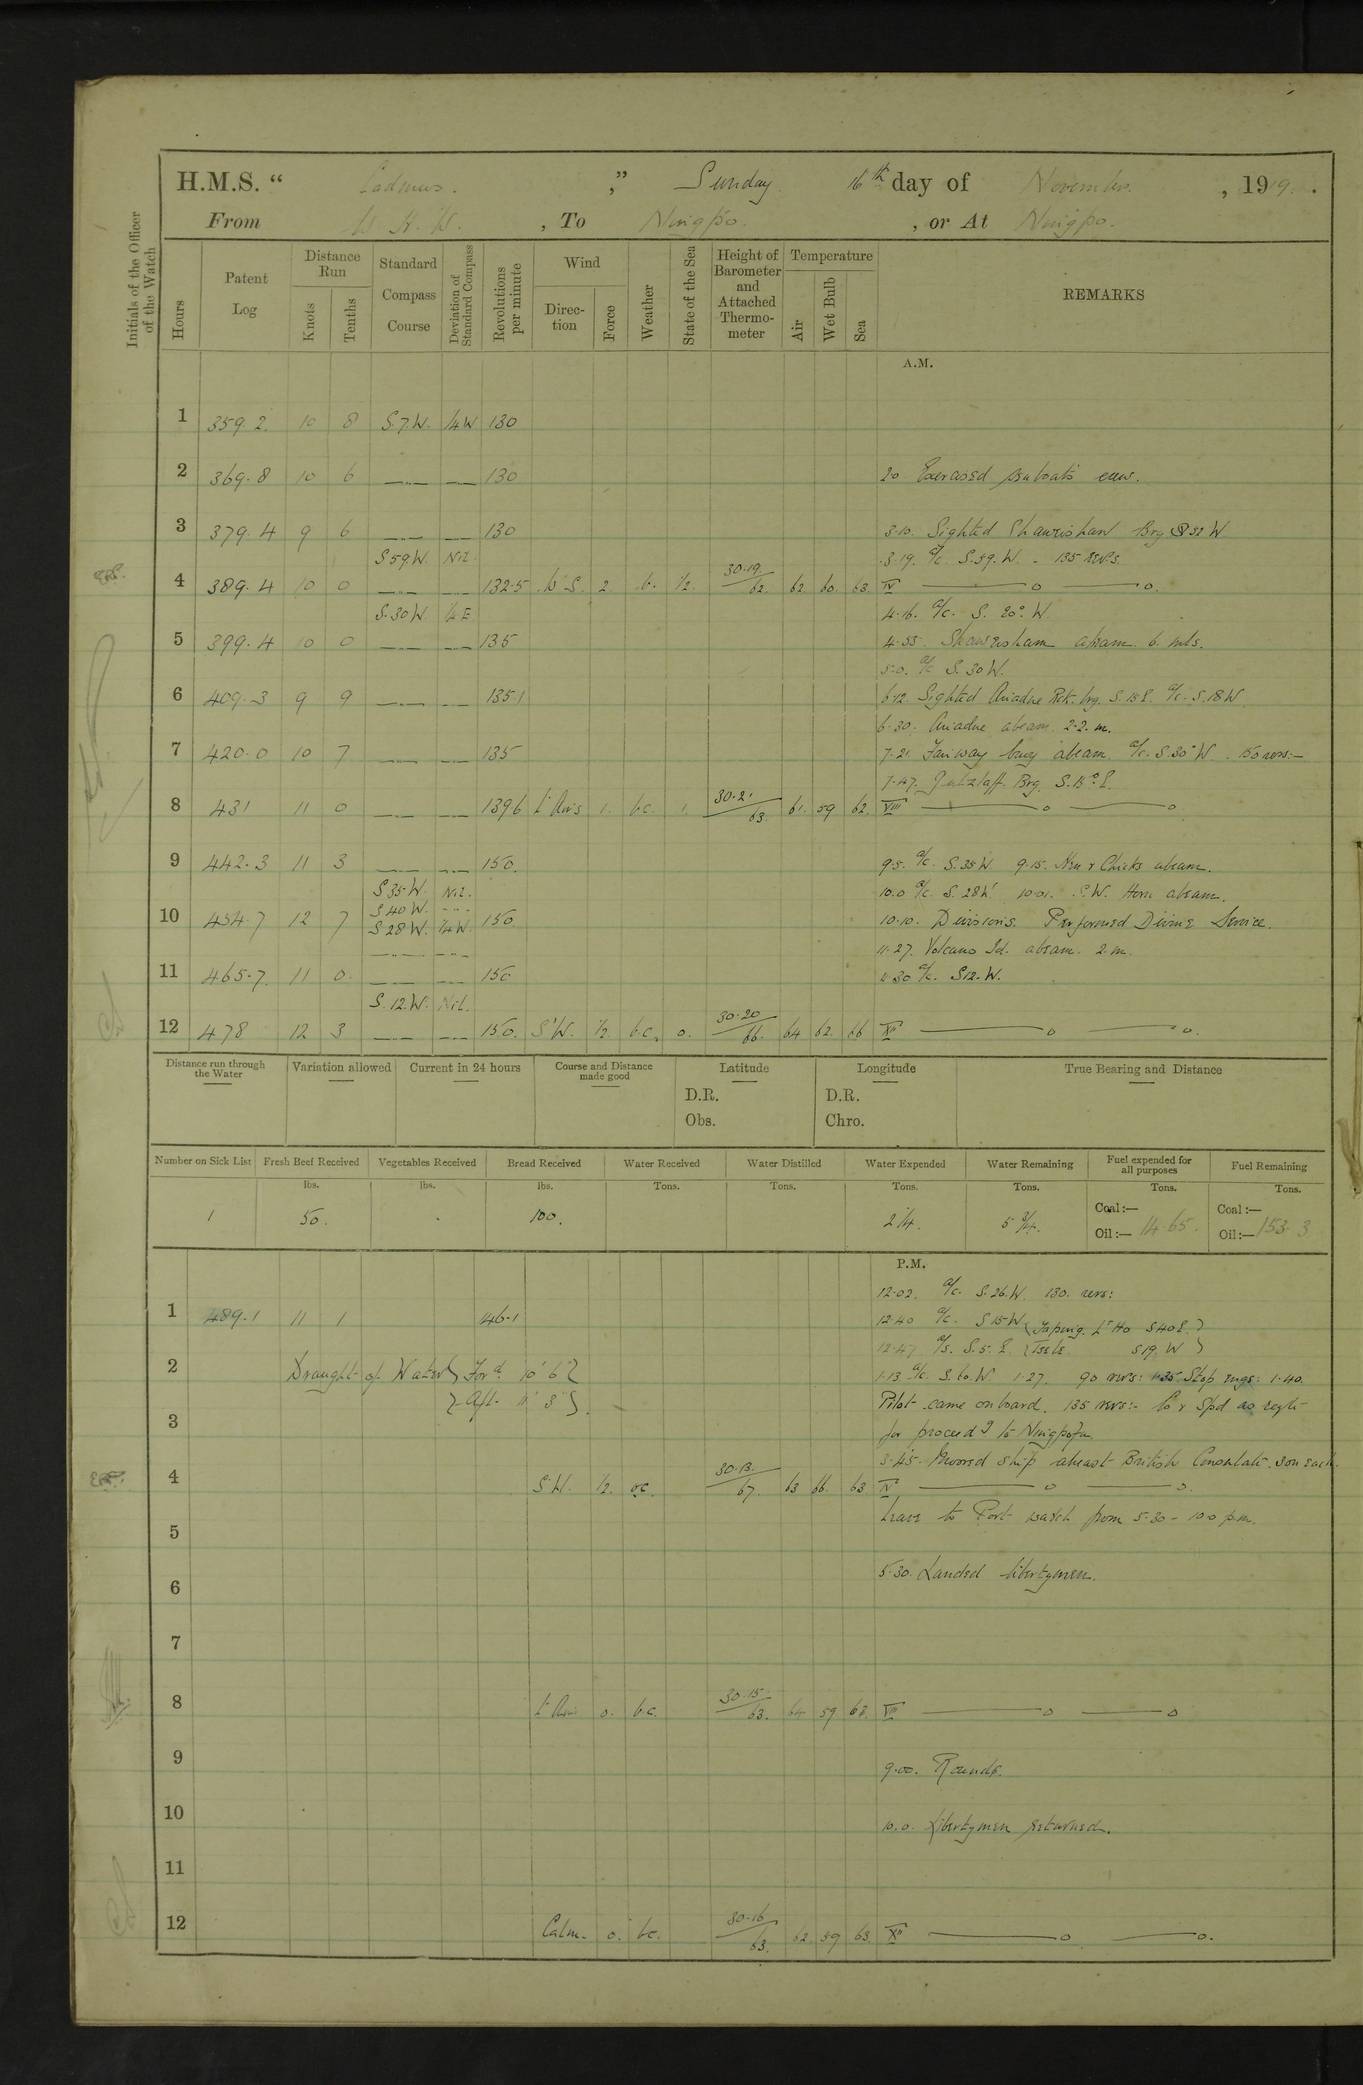 H.M.S. “ Cadmus. ,” Sunday 16th day of November. , 1919.
From W. H. W. , To Ningpo. , or At Ningpo.
Initials of the Officer of the Watch
Hours
Patent Log
Distance Run
Knots
Tenths
Standard Compass Course
Deviation of Standard Compass
Revolutions per minute
Wind
Direction
Force
Weather
State of the Sea
Height of Barometer and Attached Thermometer
Temperature
Air
Wet Bulb
Sea
REMARKS
A.M.
1 359.2. 10 8 S.7.W. ¼W 130
2 369.8 10 6 —.— —.— 130 20 Exercised seaboats crew.
3 379.4 9 6 —.— —.— 130 3.10. Sighted Shaweishan Brg S 32 W
S 59 W. Nil. 3.19. a/c. S.59. W. - 135 revs.
4 389.4 10 0 —.— —.— 132.5 W'S. 2. b. ½. 30.19./62. 62. 60. 63. IV ——o——o.
S.30W. ¼E 4.16. a/c. S. 20° W.
5 399.4 10 0 —.— —.— 135 4.55. Shaweisham abeam. 6. mls.
5.0. a/c S. 30 W.
6 409.3 9 9 —.— —.— 135.1 6.12. Sighted Ariadne Rck. brg. S. 15 E. a/c. S.18 W.
6.30. Ariadne abeam. 2.2. m.
7 420.0 10 7 —.— —.— 135 7.21. Fairway buoy abeam. a/c. S.30° W. 150 revs:-
7.47. Gutzlaff. Brg. S.15° E.
8 431 11 0 —.— —.— 139.6 Lt Airs 1. b.c. 1. 30.21/63. 61. 59 62. VIII ——o——o.
9 442.3 11 3 —.— —.— 150. 9.5. a/c. S.35 W. 9.15. Hen & Chicks abeam.
S 35 W. Nil. 10.0 a/c. S. 28 W. 10.01. S.W. Horn abeam.
S 40 W. -.-
10 454.7 12 7 S 28 W. ¼W. 150 10.10. Divisions. Performed Divine Service.
—.— —.— 11.27. Volcano Id. abeam. 2 m.
11 465.7 11 0. —.— —.— 150 11.30 a/c. S12.W.
S.12.W. Nil.
12 478 12 3 —.— —.— 150. S'W. ½. b.c. 0. 30.20/66. 64 62. 66 XII ——o——o.
Distance run through the Water
Variation allowed
Current in 24 hours
Course and Distance made good
Latitude
Longitude
True Bearing and Distance
D.R.
Obs.
D.R.
Chro.
Number on Sick List Fresh Beef Received Vegetables Received Bread Received Water Received Water Distilled Water Expended Water Remaining Fuel expended for all purposes Fuel Remaining
lbs. lbs. lbs. Tons. Tons. Tons. Tons. Tons. Tons.
1 50. 100. 2¼. 5¾. Coal :— Oil :— 14.65. Coal :— Oil :— 153.3
P.M.
12.02. a/c. S.26.W. 130. revs:
1 489.1 11 1 146.1 12.40 a/c. S 15 W { Taping. Lt Ho S40E. }
12.47. a/c. S. 5. E. S19. W }
2 Draught of Water } Ford. 10' 6" { 1.13 a/c. S. 60. W 1.27. 90 revs: 1.35. Stop engs: 1.40.
} Aft. 11' 3" }. Pilot came onboard. 135 revs:- Co & Spd as reqte
3 for proceedg to Ningpo
3.45. Moored ship abreast British Consulate. 3 on each.
4 S.W. ½. oc. 30.13./67. 63 66. 63 IV ——o——o.
Leave to Port watch from 5.30 - 10.0 p.m.
5
6 5.30. Landed libertymen.
7
8 Lt Airs 0. b.c. 30.15/63. 64 59 62. VIII ——o——o
9 9.00. Rounds.
10 10.0. Libertymen returned.
11
12 Calm. 0. bc. 30.16/63. 62. 59 63. XII ——o——o.